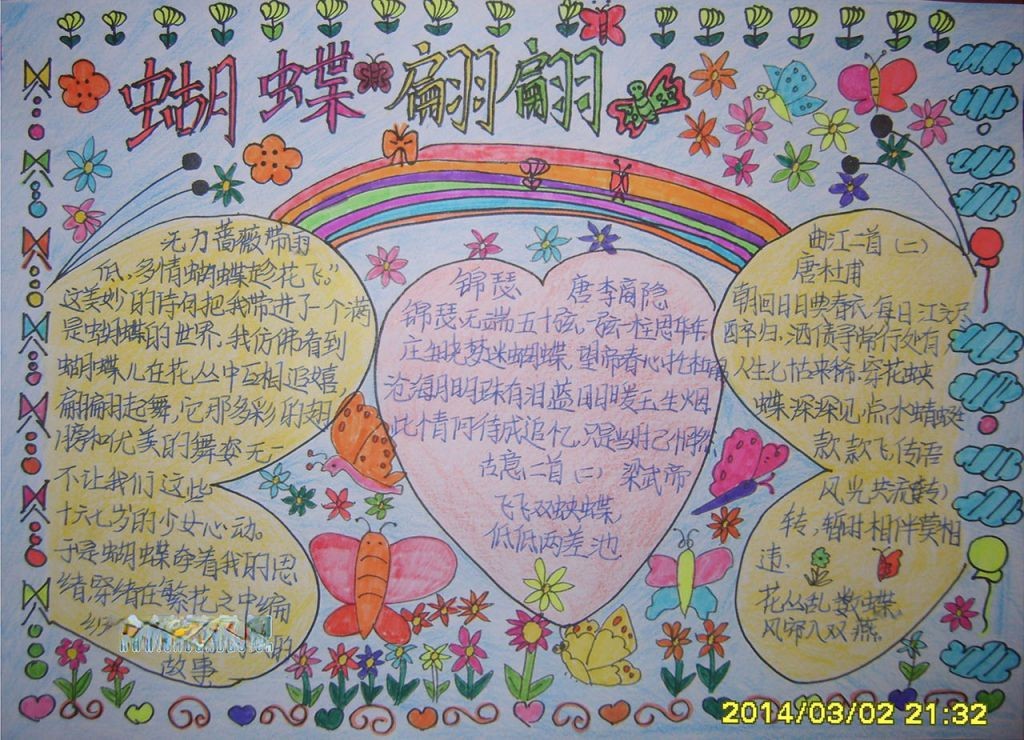 蝴蝶翩翩
无力蔷薇带雨
低，多情蝴蝶趁花飞。”
这美妙的诗句把我带进了一个满
是蝴蝶的世界.我仿佛看到
蝴蝶儿在花丛中互相追嬉,
翩翩起舞,它那多彩的翅
膀和优美的舞姿无一
不让我们这些
十六七岁的少女心动。
于是蝴蝶牵着我的思
绪,穿绕在繁花之中编
的
故事
锦瑟 唐李商隐
锦瑟无端五十弦,一弦一柱思华年.
庄生晓梦迷蝴蝶,望帝春心托杜鹃
沧海月明珠有泪蓝田日暖玉生烟
此情可待成追忆,只是当时已惘然
古意二首(二) 梁武帝
飞飞双蛱蝶
低低两差池
曲江二首(二)
唐杜甫
朝回日日典春衣,每日江头尽
醉归.酒债寻常行处有
人生七十古来稀.穿花蛱
蝶深深见,点水蜻蜓
款款飞传语
风光共流转)
转,暂时相伴莫相
违.
花丛乱数蝶
风帘入双燕
2014/03/02 21:32